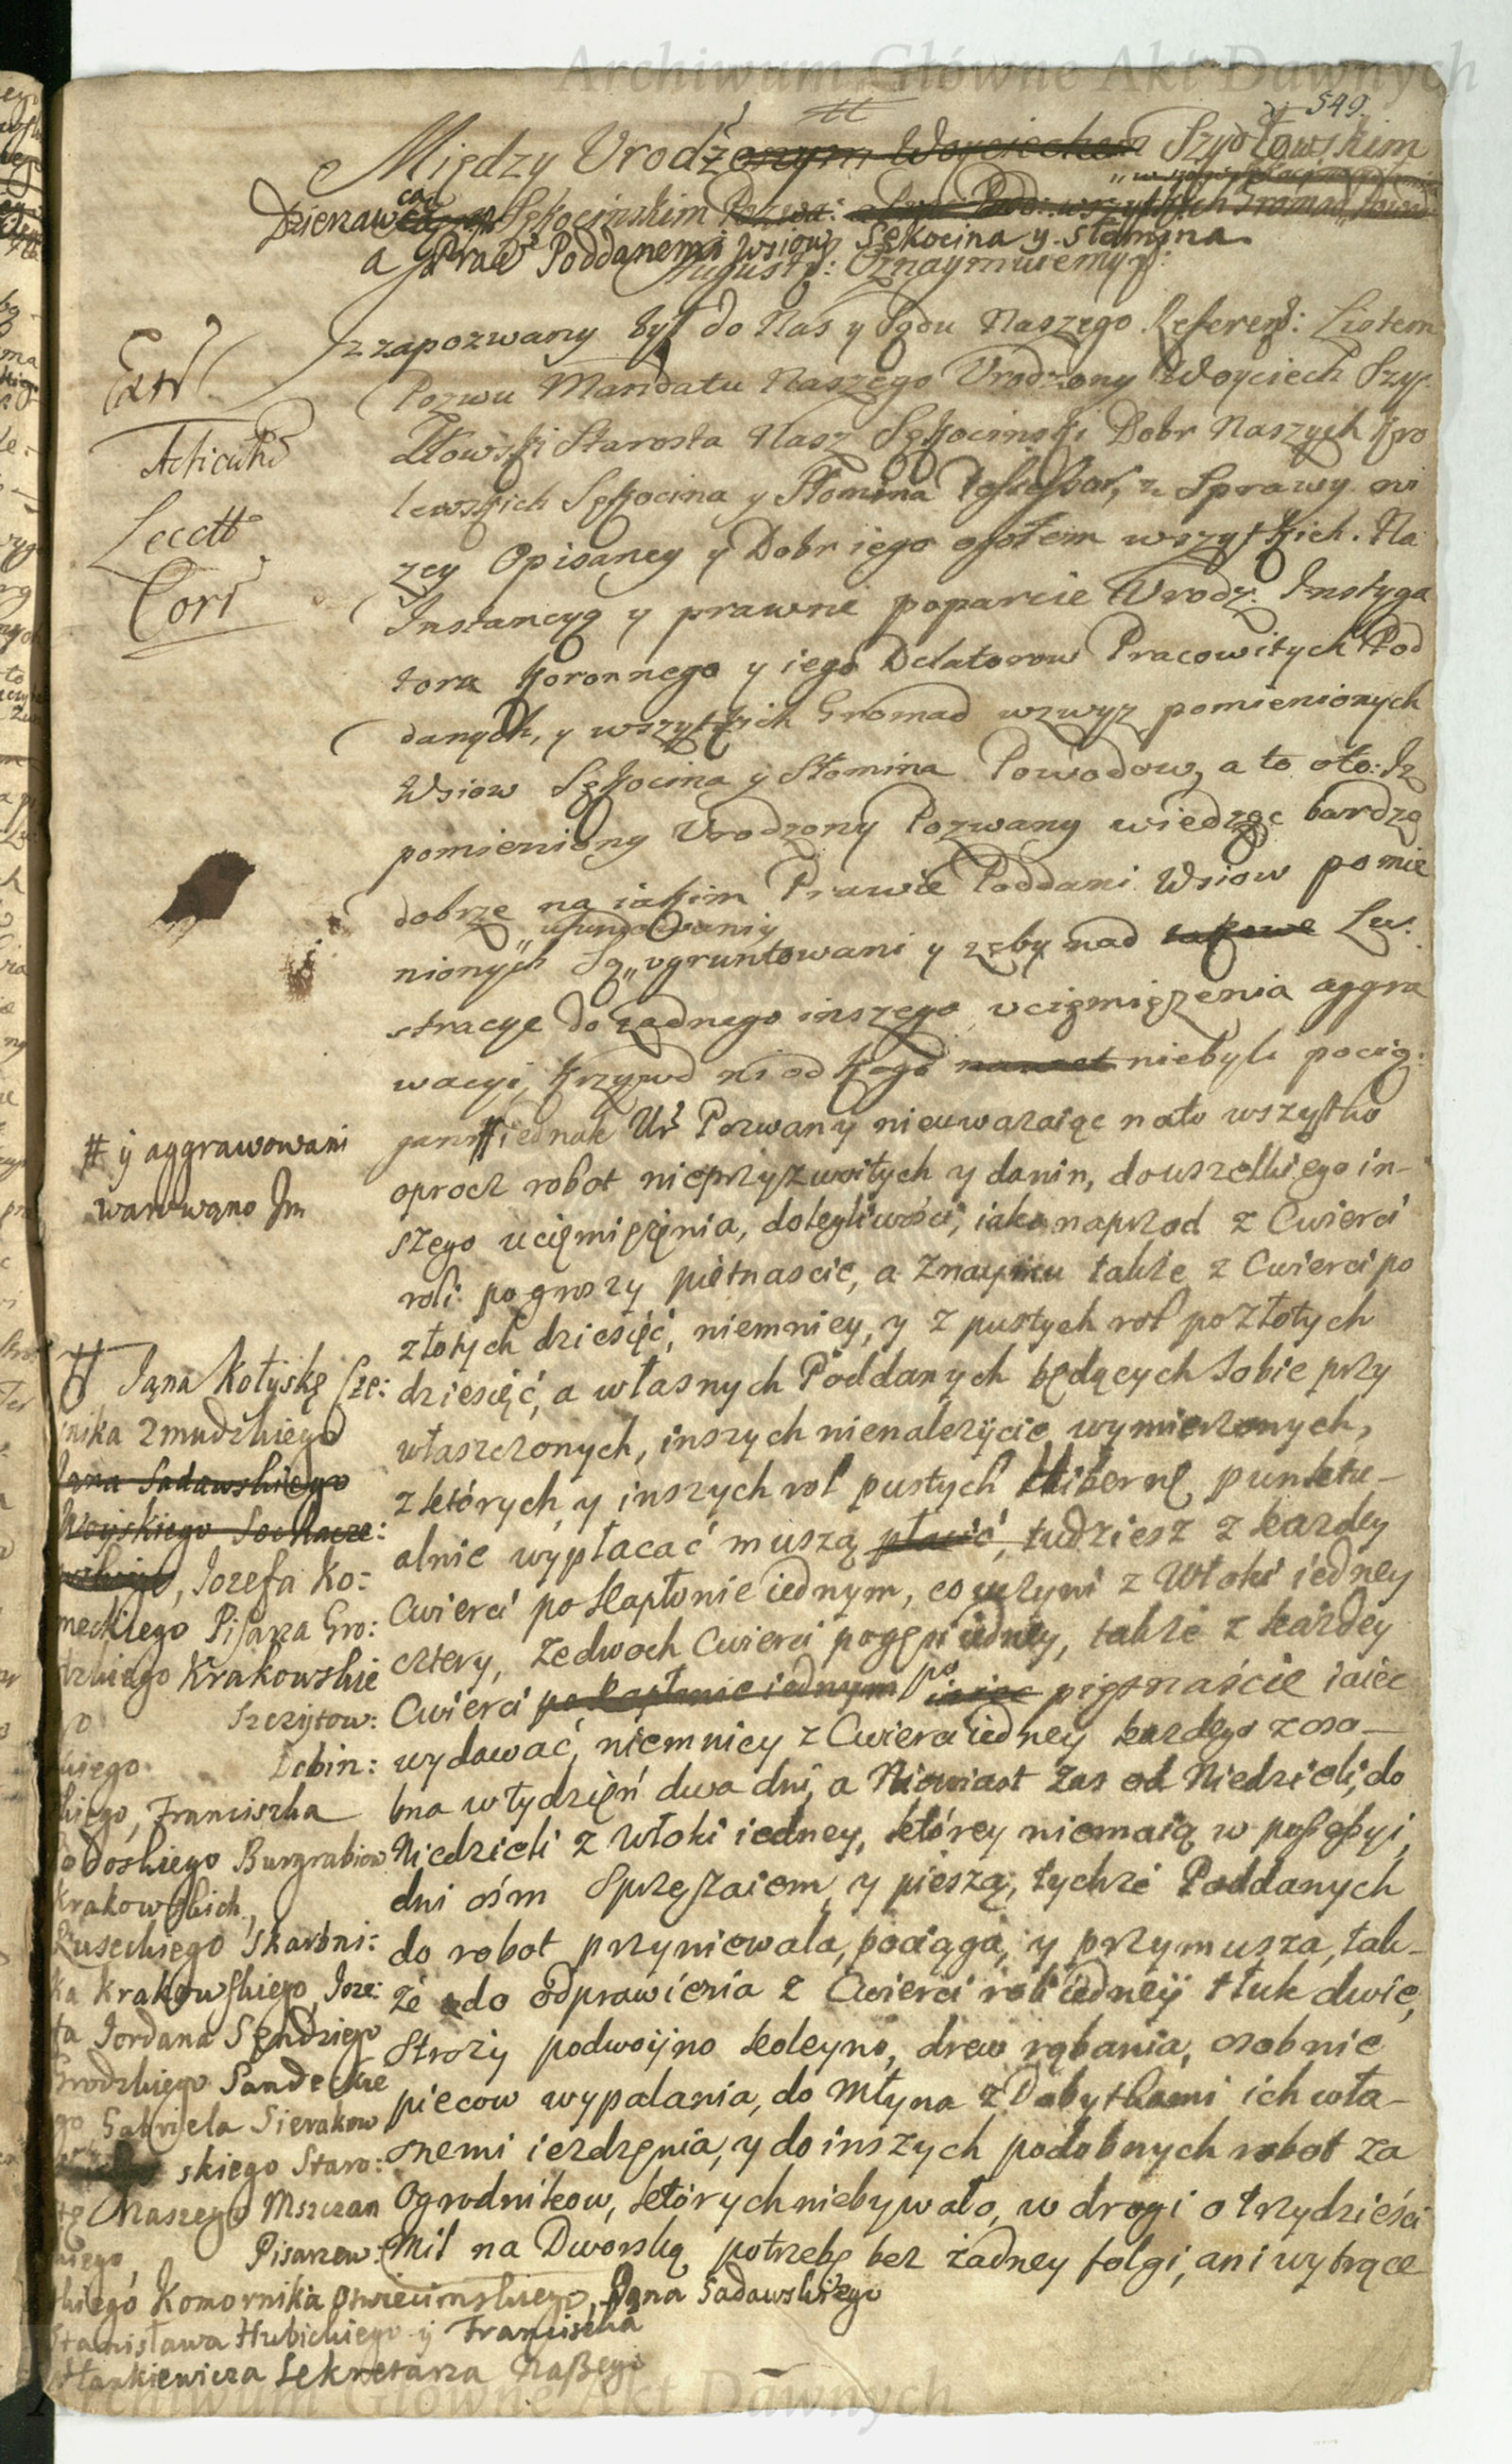 Archiwum Główne Akt Dawnych
549.
Między Urodzonym Woyciechem Szydłowskim
Dzierzawcą Sękocinskim
a Prac Poddanemi wsiow Sękocina y Słomina
August: Oznaymuiemy
Iz zapozwany był do Nas y Sądu Naszego Referen: Listem
Pozwu Mandatu Naszego Urodzony Woyciech Szy
dłowski Starosta Nasz Sękocinski Dobr Naszych Kro
lewskich Sękocina y Słomina z Sprawy ni
zey Opisaney y Dobr iego ogołem wszystkich. Na
Instancyą y prawne poparcie Urodz: Instyga
tora Koronnego y iego Delatorow Pracowitych Pod
danych, y wszystkich Gromad wzwyz pomienionych
Wsiow Sękocina y Słomina Powodow, a to oto: Iz
pomieniony Urodzony Pozwany wiedząc bardzo
dobrze na iakim Prawie Poddani Wsiow pomie
ufundowani y
nionych są ugruntowani y zeby nad takowe Lu:
stracye do zadnego inszego uciemięzenia aggra
wacyi, Krzywd ni od kogo niebyli pocią:
gani # iednak Ur Pozwany nieuwazaiąc nato wszystko
oprocz robot nieprzyzwoitych y danin, dowszelkiego in-
szego uciemięzenia, dolegliwości, iako naprzod z Cwierci
roli po groszy pietnascie, a Znaymu takze z Cwierci po
złotych dziesięć, niemniey, y z pustych rol po złotych
dziesięć, a własnych Poddanych będących sobie przy
właszczonych, inszych nienalezycie wymierzonych,
z których, y inszych rol pustych Hibernę punktu-
alnie wypłacać muszą płacić, tudziesz z kazdey
Cwierci po kapłonie iednym, co uczyni z Włoki iedney
cztery, Ze dwoch Cwierci po gęsi iedney, takze z kazdey
Cwierci po kapłonie iednym po piętnaście iaiec
wydawać, niemniey z Cwierci iedney kazdego zoso-
bna w tydzień dwa dni, a Niewiast zas od Niedzieli, do
Niedzieli z Włoki iedney, której niemaią w possessyi,
dni ośm Sprzęzaiem, y pieszą, tychze Poddanych
do robot przyniewala, pociąga, y przymusza, tak-
ze do odprawienia z Cwierci roli iedney tłuk dwie,
Strozy podwoyno koleyno, drew rąbania, osobnie
piecow wypalania, do Młyna z Dobytkami ich wła-
snemi iezdzenia, y do inszych podobnych robot za
Ogrodnikow, których niebywało, w drogi o trzydzieści
Mil na Dworską potrzebę bez żadney folgi, ani wytrące
Acticatt
Lectt
Cort
# y aggrawowani
warowano Im
Jana Kołyskę Cze:
snika Zmudzkiego
Jana Sadawskiego
Woyskiego Sochacze:
wskiego, Jozefa Ko:
meckiego Pisarza Gro:
dzkiego Krakowskie
go Szczytow:
skiego Debin:
skiego, Franciszka
Radoskiego Burgrabiow
Krakowskich,
Ruseckiego Skarbni:
ka Krakowskiego, Joze:
fa Jordana Sędziego
Grodzkiego Sandeckie
go, Gabryela Sierakow
skiego Staro:
stę Naszego Mszczan
skiego, Pisarzew:
skiego Komornika Oswiecimskiego, Jana Sadawskiego
Stanisława Hubickiego y Franciszka
Sekretarza Naszego
Archiwum Główne Akt Dawnych